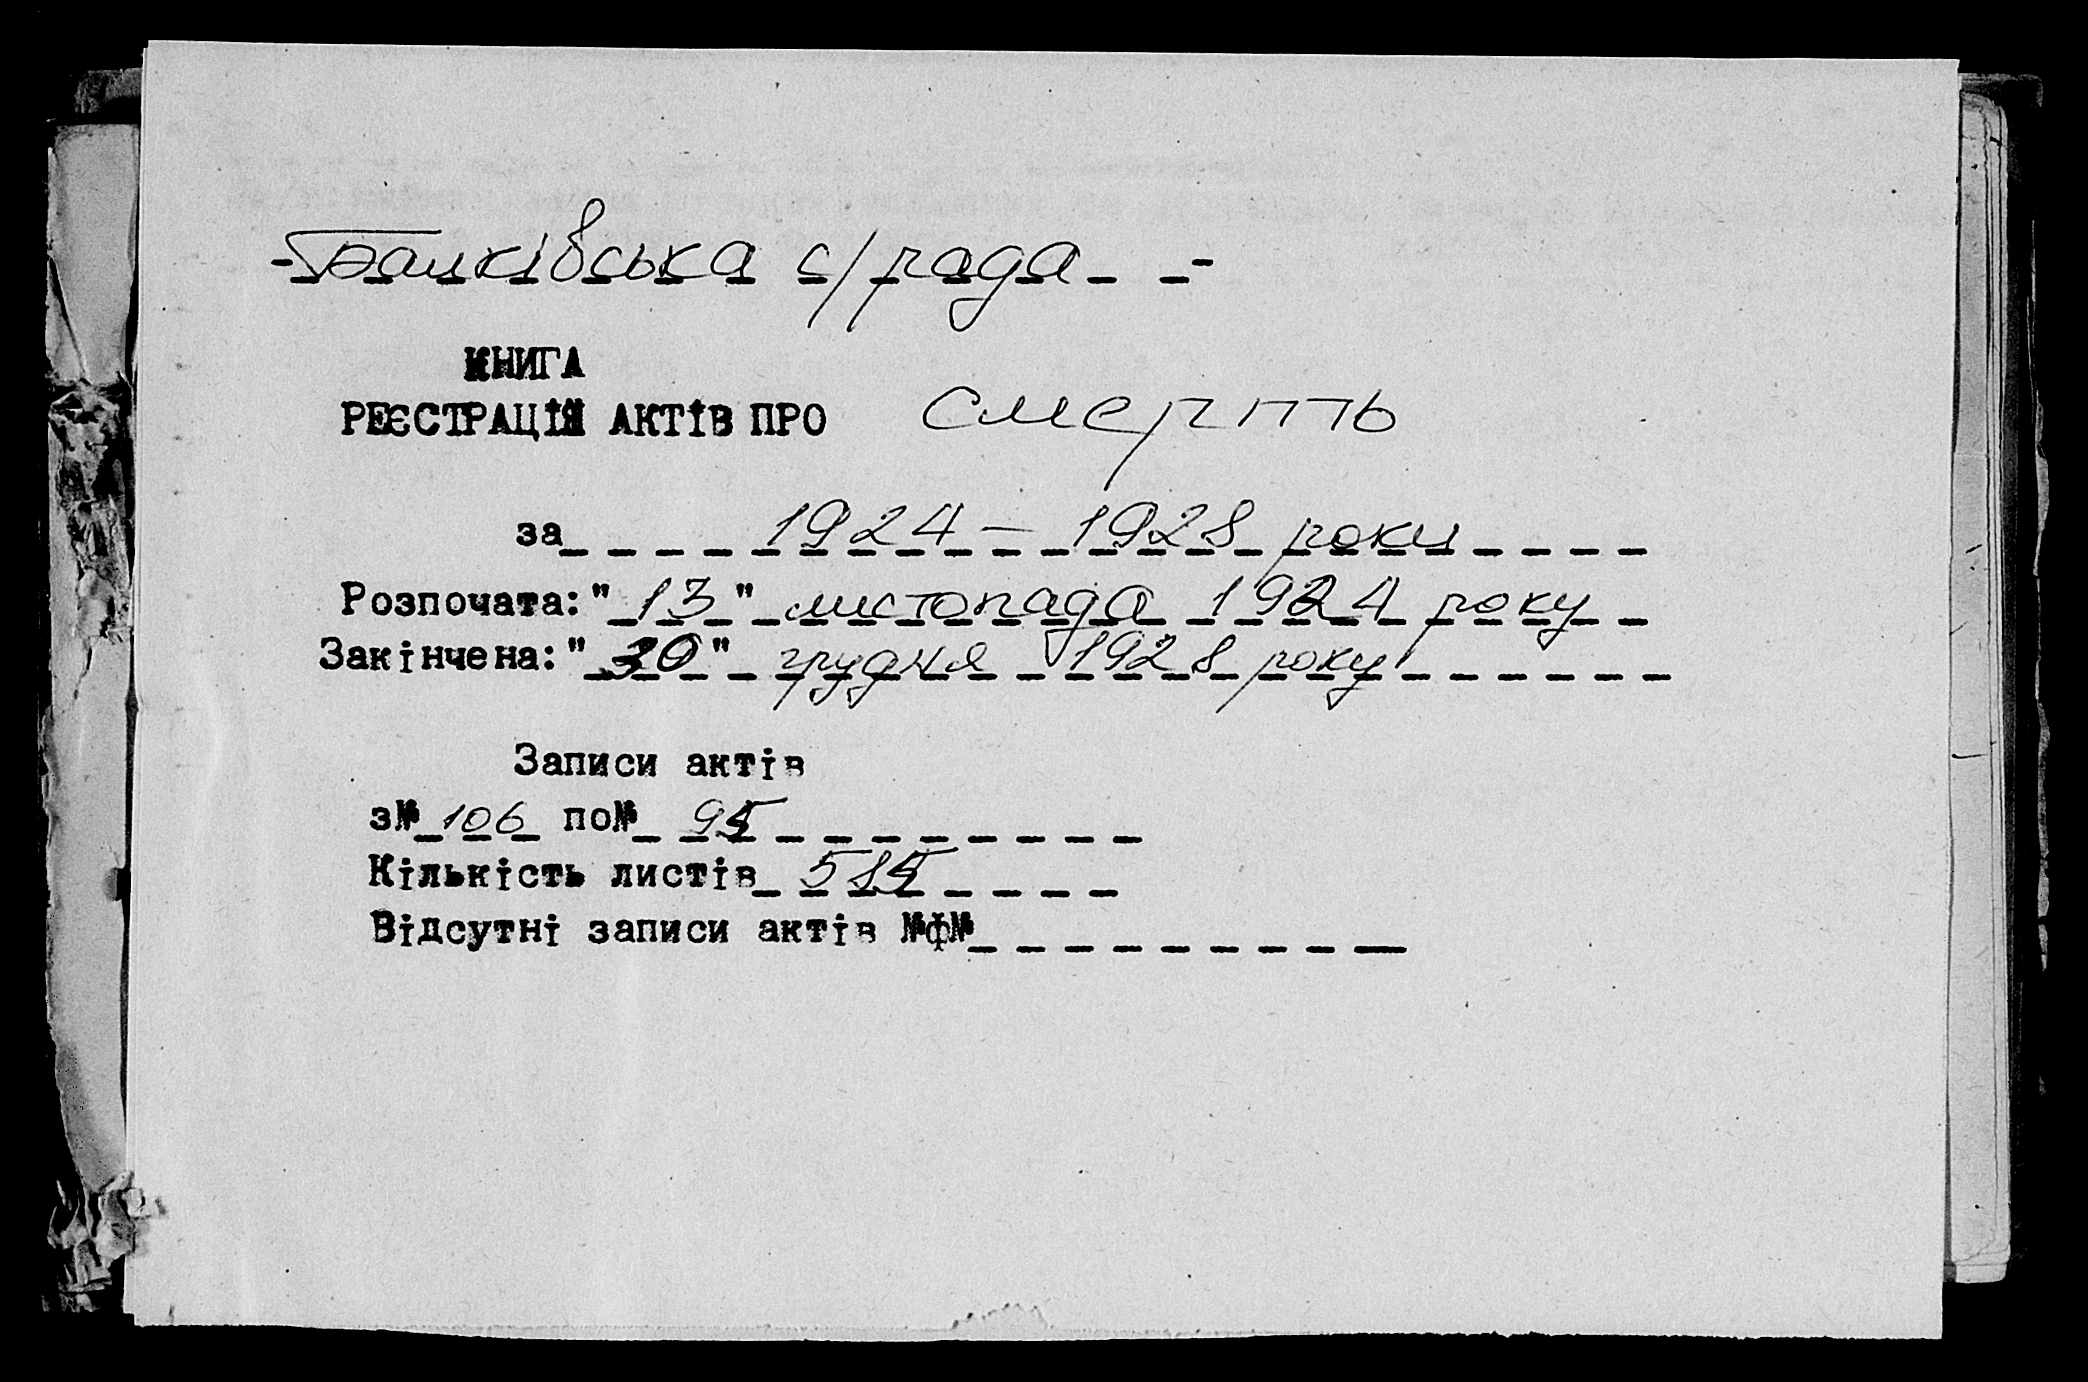 Балківська с/рада
КНИГА
РЕЄСТРАЦІЯ АКТІВ ПРО смерть
за 1924 – 1928 роки
Розпочата: "13" листопада 1924 року
Закінчена: "30" грудня 1928 року
Записи актів
з№ 106 по№ 95
Кількість листів 585
Відсутні записи актів №ф№